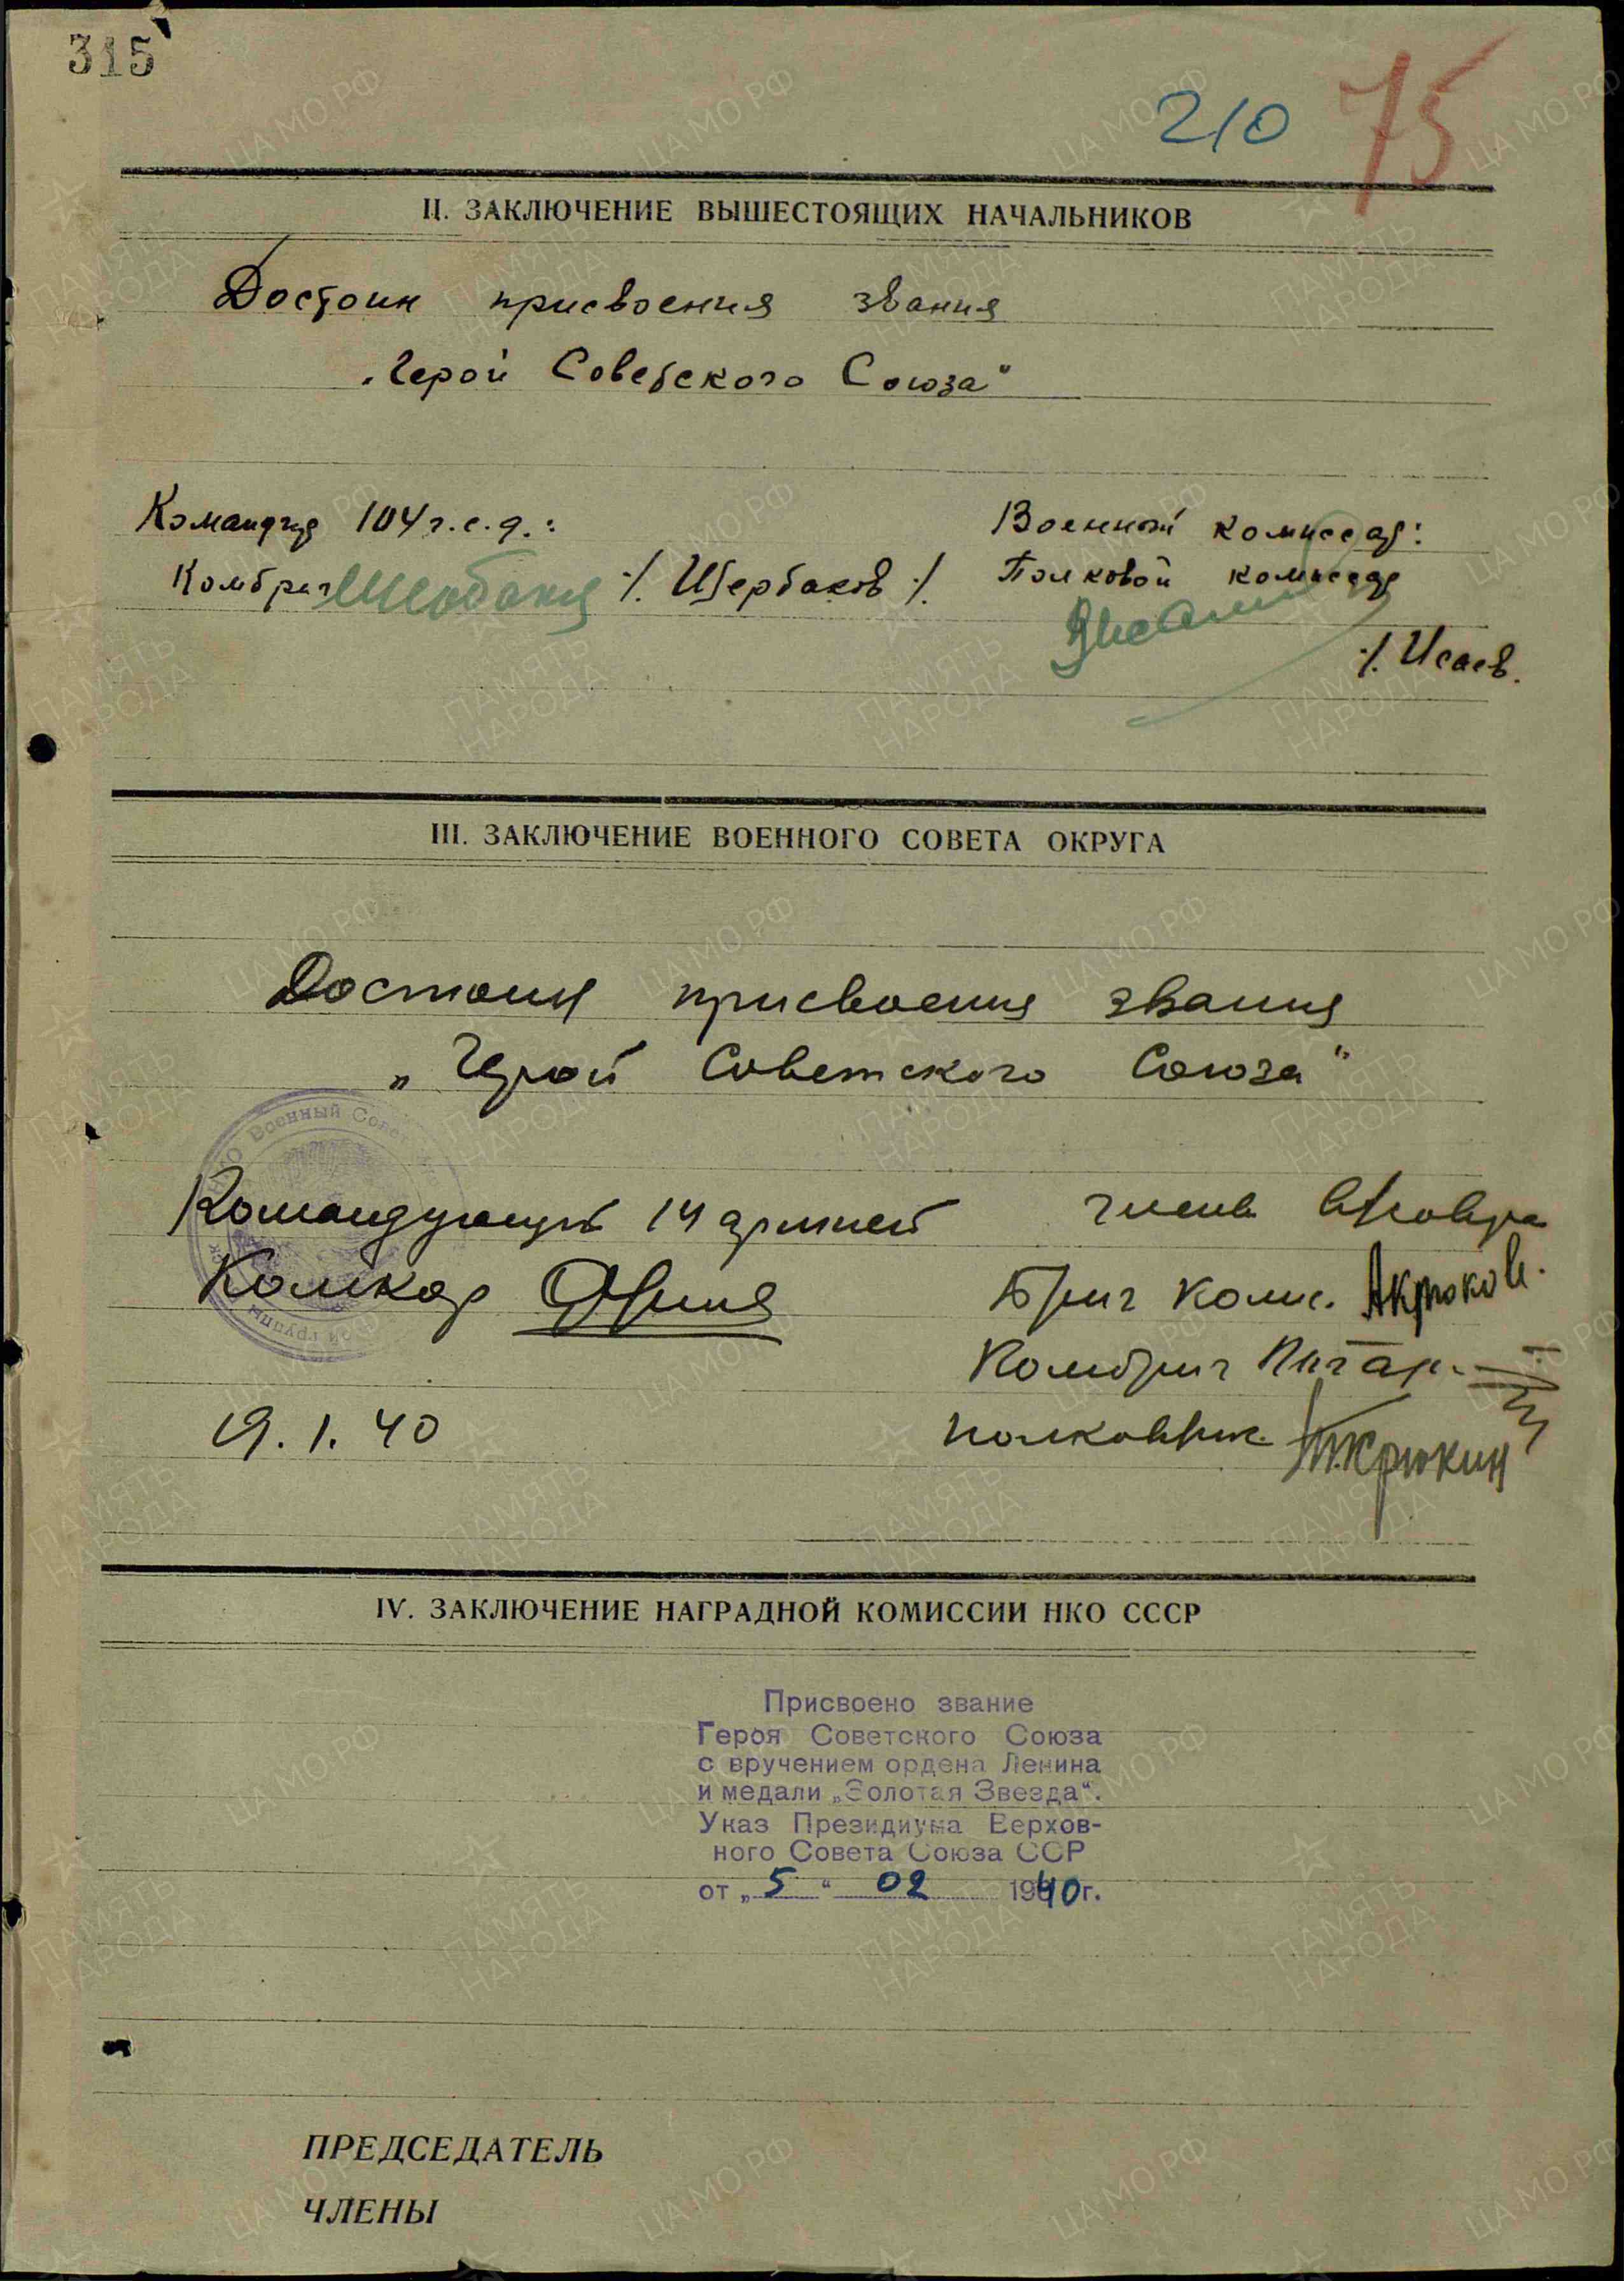 315
210 75
II. ЗАКЛЮЧЕНИЕ ВЫШЕСТОЯЩИХ НАЧАЛЬНИКОВ
Достоин присвоения звания
„Герой Советского Союза“
Командир 104 г.с.д.:
Военный комиссар:
Комбриг /. Щербаков /.
Полковой комиссар
/. Исаев.
III. ЗАКЛЮЧЕНИЕ ВОЕННОГО СОВЕТА ОКРУГА
Достоин присвоения звания
„Герой Советского Союза“
Военный Совет
Командующий 14 армией
Комкор
Члены
Бриг. комис. А Крюков.
Комбриг
19.1.40
полковник Крюкин
IV. ЗАКЛЮЧЕНИЕ НАГРАДНОЙ КОМИССИИ НКО СССР
Присвоено звание
Героя Советского Союза
с вручением ордена Ленина
и медали „Золотая Звезда“.
Указ Президиума Верхов-
ного Совета Союза ССР
от „5“ 02 1940г.
ПРЕДСЕДАТЕЛЬ
ЧЛЕНЫ
ЦА МО РФ
ПАМЯТЬ
НАРОДА